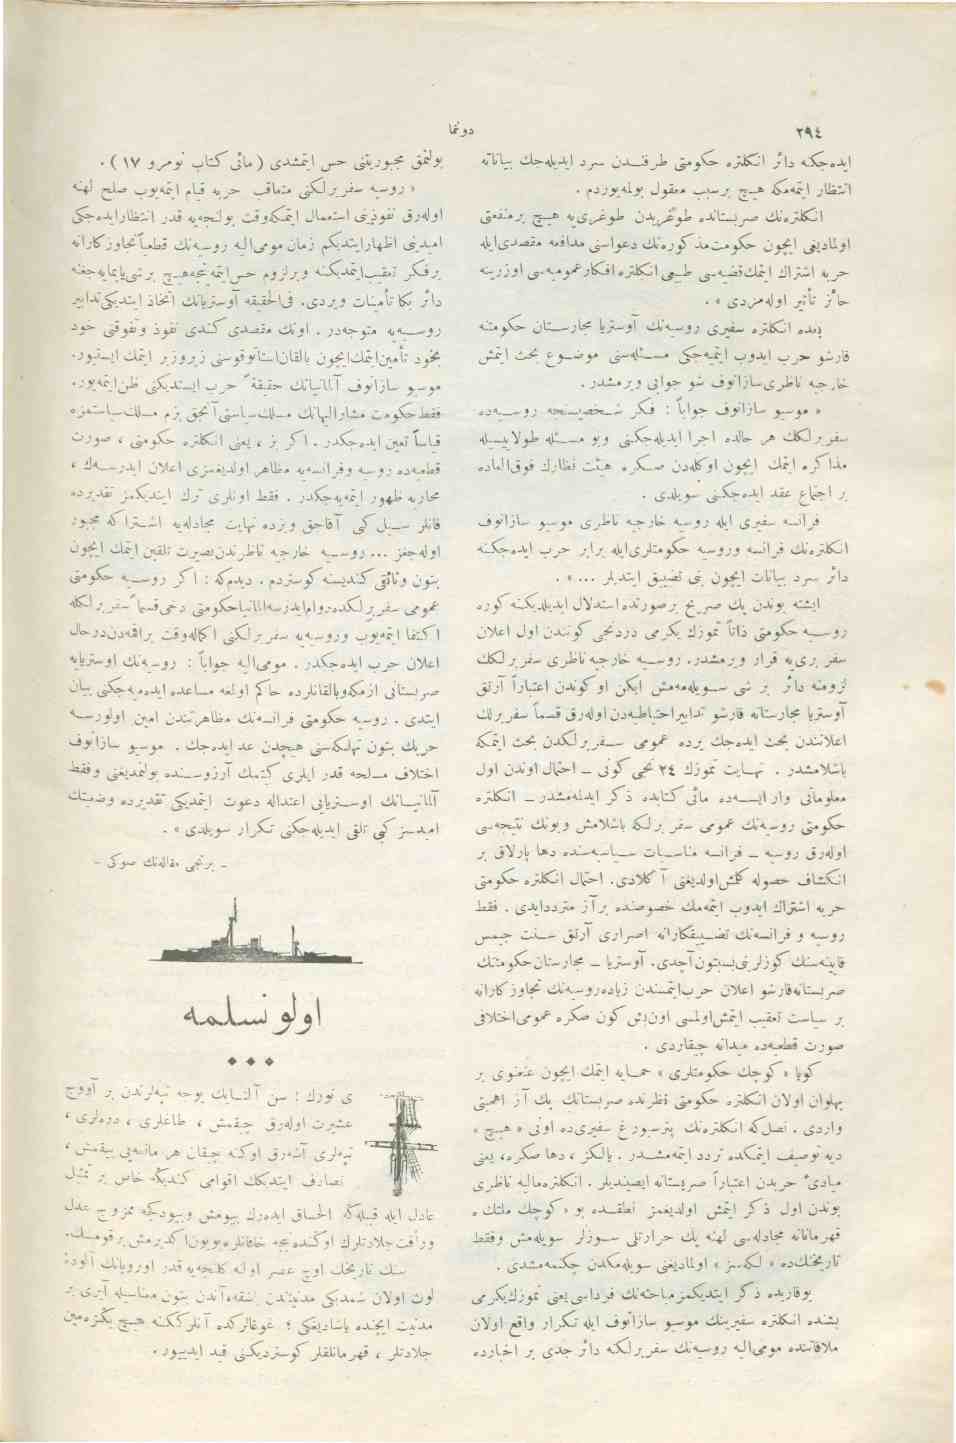 ٢٩٤
دوننما
ايده‌جكنه دائر انكلتره حكومتى طرفندن سرد ايديله‌جك بياناته
انتظار ايتمه‌مكه هيچ برسبب معقول بوله‌ميوردم .
انكلتره‌نك صربستانده طوغريدن طوغرى‌يه هيچ برمنفعتى
اولماديغى ايچون حكومت مذكوره‌نك دعواسنى مدافعه مقصديله
حربه اشتراك ايتمك قضيه‌سى طبيعى انكلتره افكار عموميه‌سى اوزرينه
حائز تأثير اوله‌مزدى » .
ينه انكلتره سفيرى روسيه‌نك آوستريا مجارستان حكومتنه
قارشو حرب ايدوب ايتميه‌جكى مسئله‌سنى موضوع بحث ايتمش
خارجيه ناظرى سازانوف شو جوابى ويرمشدر .
« موسيو سازانوف جواباً : فكر شخصيسنجه روسيه‌ده
سفربرلك هر حالده اجرا ايديله‌جكنى وبو مسئله طولاييسيله
مذاكره ايتمك ايچون اوكله‌دن صكره هيئت نظارك فوق العاده
بر اجتماع عقد ايده‌جكنى سويلدى .
فرانسه سفيرى ايله روسيه خارجيه ناظرى موسيو سازانوف
انكلتره‌نك فرانسه وروسيه حكومتلرى‌ايله برابر حرب ايده‌جكنه
دائر سرد بيانات ايچون بنى تضييق ايتديلر ... » .
ايشته بوندن پك صريح برصورتده استدلال ايديلديكنه كوره
روسيه حكومتى ذاتاً تموزك يكرمى دردنجى كونندن اول اعلان
سفر برى‌يه قرار ويرمشدر. روسيه خارجيه ناظرى سفربرلك
لزومنه دائر بر شى سويله‌مه‌مش ايكن او كوندن اعتباراً آرتق
آوستريا مجارستانه قارشو تدابيراحتياطيه‌دن اوله‌رق قسماً سفربرلك
اعلانندن بحث ايده‌جك يرده عمومى سفربرلكدن بحث ايتمكه
باشلامشدر . نهايت تموزك ٢٤ نجى كونى ــ احتمال اوندن اول
معلوماتى وار ايسه‌ده مائى كتابده ذكر ايدلمه‌مشدر ــ انكلتره
حكومتى روسيه‌نك عمومى سفر برلكه باشلامش وبونك نتيجه‌سى
اوله‌رق روسيه ــ فرانسه مناسبات سياسيه‌سنده دها پارلاق بر
انكشاف حصوله كلمش اولديغنى آ كلادى. احتمال انكلتره حكومتى
حربه اشتراك ايدوب ايتمه‌مك خصوصنده برآز مترددايدى . فقط
روسيه و فرانسه‌نك تضييقكارانه اصرارى آرتق سنت جيمس
قابينه‌سنك كوزلرينى بسبتون آچدى. آوستريا ــ مجارستان حكومتنك
صربستانه‌قارشو اعلان حرب‌ايتمسندن زياده‌روسيه‌نك تجاوزكارانه
بر سياست تعقيب ايتمش‌اولمسى اون‌بش كون صكره عمومى‌اختلافى
صورت قطعيه‌ده ميدانه چيقاردى .
كويا « كوچك حكومتلرى » حمايه ايتمك ايچون عنعنوى بر
پهلوان اولان انكلتره حكومتى نظرنده صربستانك پك آز اهميتى
واردى . نصل كه انكلتره‌نك پترسبورغ سفيرى‌ده اونى « هيچ »
ديه توصيف ايتمكده تردد ايتمه‌مشدر . يالكز ، دها صكره، يعنى
مبادئ حربدن اعتباراً صربستانه ايصينديلر . انكلتره‌ماليه ناظرى
بوندن اول ذكر ايتمش اولديغمز نطقنده بو « كوچك ملتك »
قهرمانانه مجادله‌سى لهنه پك حرارتلى سوزلر سويله‌مش وفقط
تاريخنك‌ده « لكه‌سز » اولماديغنى سويله‌مكدن چكنمه‌مشدى .
يوقاريده ذكر ايتديكمز مباحثه‌نك فرداسى يعنى تموزك‌يكرمى
بشنده انكلتره سفيرينك موسيو سازانوف ايله تكرار واقع اولان
ملاقاتنده مومى‌اليه روسيه‌نك سفربرلكنه دائر جدى بر اخبارده
بولنمق مجبوريتنى حس ايتمشدى ( مائى كتاب نومرو ١٧ ) .
« روسيه سفربرلكنى متعاقب حربه قيام ايتميوب صلح لهنه
اوله‌رق نفوذينى استعمال ايتمكه‌وقت بولنجه‌يه قدر انتظارايده‌جكى
اميدينى اظهارايتديكم زمان مومى‌اليه روسيه‌نك قطعياً تجاوزكارانه
برفكر تعقيب‌ايتمديكنه وبرلزوم حس‌ايتمه‌ينجه‌هيچ برشى‌ياپميه‌جغنه
دائر بكا تأمينات ويردى. فى‌الحقيقه آوستريانك اتخاذ ايتديكى‌تدابير
روسيه‌يه متوجهدر . اونك مقصدى كندى نفوذ وتفوقنى خود
بخود تأمين‌ايتمك‌ايچون بالقان‌استاتوقوسنى زيروزبر ايتمك ايستيور.
موسيو سازانوف آلمانيانك حقيقةً حرب ايستديكنى ظن‌ايتميور.
فقط‌حكومت مشاراليهانك مسلك‌سياسى‌آنجق بزم مسلك‌سياستمزه
قياساً تعين ايده‌جكدر . اكر بز ، يعنى انكلتره حكومتى ، صورت
قطعيه‌ده روسيه وفرانسه‌يه مظاهر اولديغمزى اعلان ايدرسه‌ك ،
محاربه ظهور ايتميه‌جكدر . فقط اونلرى ترك ايتديكمز تقديرده
قانلر سيل كبى آقاجق وبزده نهايت مجادله‌يه اشتراكه مجبور
اوله‌جغز ... روسيه خارجيه ناظرندن‌بصيرت تلقين ايتمك ايچون
بتون وثائقى كنديسنه كوستردم . ديدم‌كه : اكر روسيه حكومتى
عمومى سفربرلكده‌دوام‌ايدرسه‌المانياحكومتى دخى‌قسماً سفربرلكله
اكتفا ايتميوب وروسيه‌يه سفربرلكنى اكماله‌وقت براقمه‌دن‌درحال
اعلان حرب ايده‌جكدر . مومى‌اليه جواباً : روسيه‌نك اوستريايه
صربستانى ازمكه‌وبالقانلرده حاكم اولمغه مساعده ايده‌ميه‌جكنى بيان
ايتدى . روسيه حكومتى فرانسه‌نك مظاهرتندن امين اولورسه
حربك بتون تهلكه‌سنى هيچدن عد ايده‌جك . موسيو سازانوف
اختلاف مسلحه قدر ايلرى كيتمك آرزوسنده بولنمديغنى وفقط
آلمانيانك اوستريايى اعتداله دعوت ايتمديكى تقديرده وضعيتك
اميدسز كبى تلقى ايديله‌جكنى تكرار سويلدى » .
ــ برنجى مقاله‌نك صوكى ــ
اولو نسلمه
ى تورك ! سن آلتايك يوجه تپه‌لرندن بر آووج
عشيرت اوله‌رق چيقمش ، طاغلرى ، دره‌لرى ،
تپه‌لرى آشه‌رق اوكنه چيقان هر مانعه‌يى ييقمش ،
تصادف ايتديكك اقوامى كنديكه خاص بر تمثل
عادل ايله قبيله‌كه الحاق ايده‌رك بيومش وبيودكجه ممزوج عدل
ورأفت‌جلادتلرك اوكنده نيجه خاقانلره بويون‌اكديرمش برقومسك.
سنك تاريخك اوچ عصر اولنه كلنجه‌يه قدر اوروپانك آلوده
لوث اولان شمديكى مدنيتندن بشقه‌آندن بتون معناسيله آيرى بر
مدنيت ايچنده ياشاديغكى ؛ غوغالركده آنلرككنه هيچ بكزه‌مه‌ين
جلادتلر ، قهرمانلقلر كوسترديكنى قيد ايدييور .